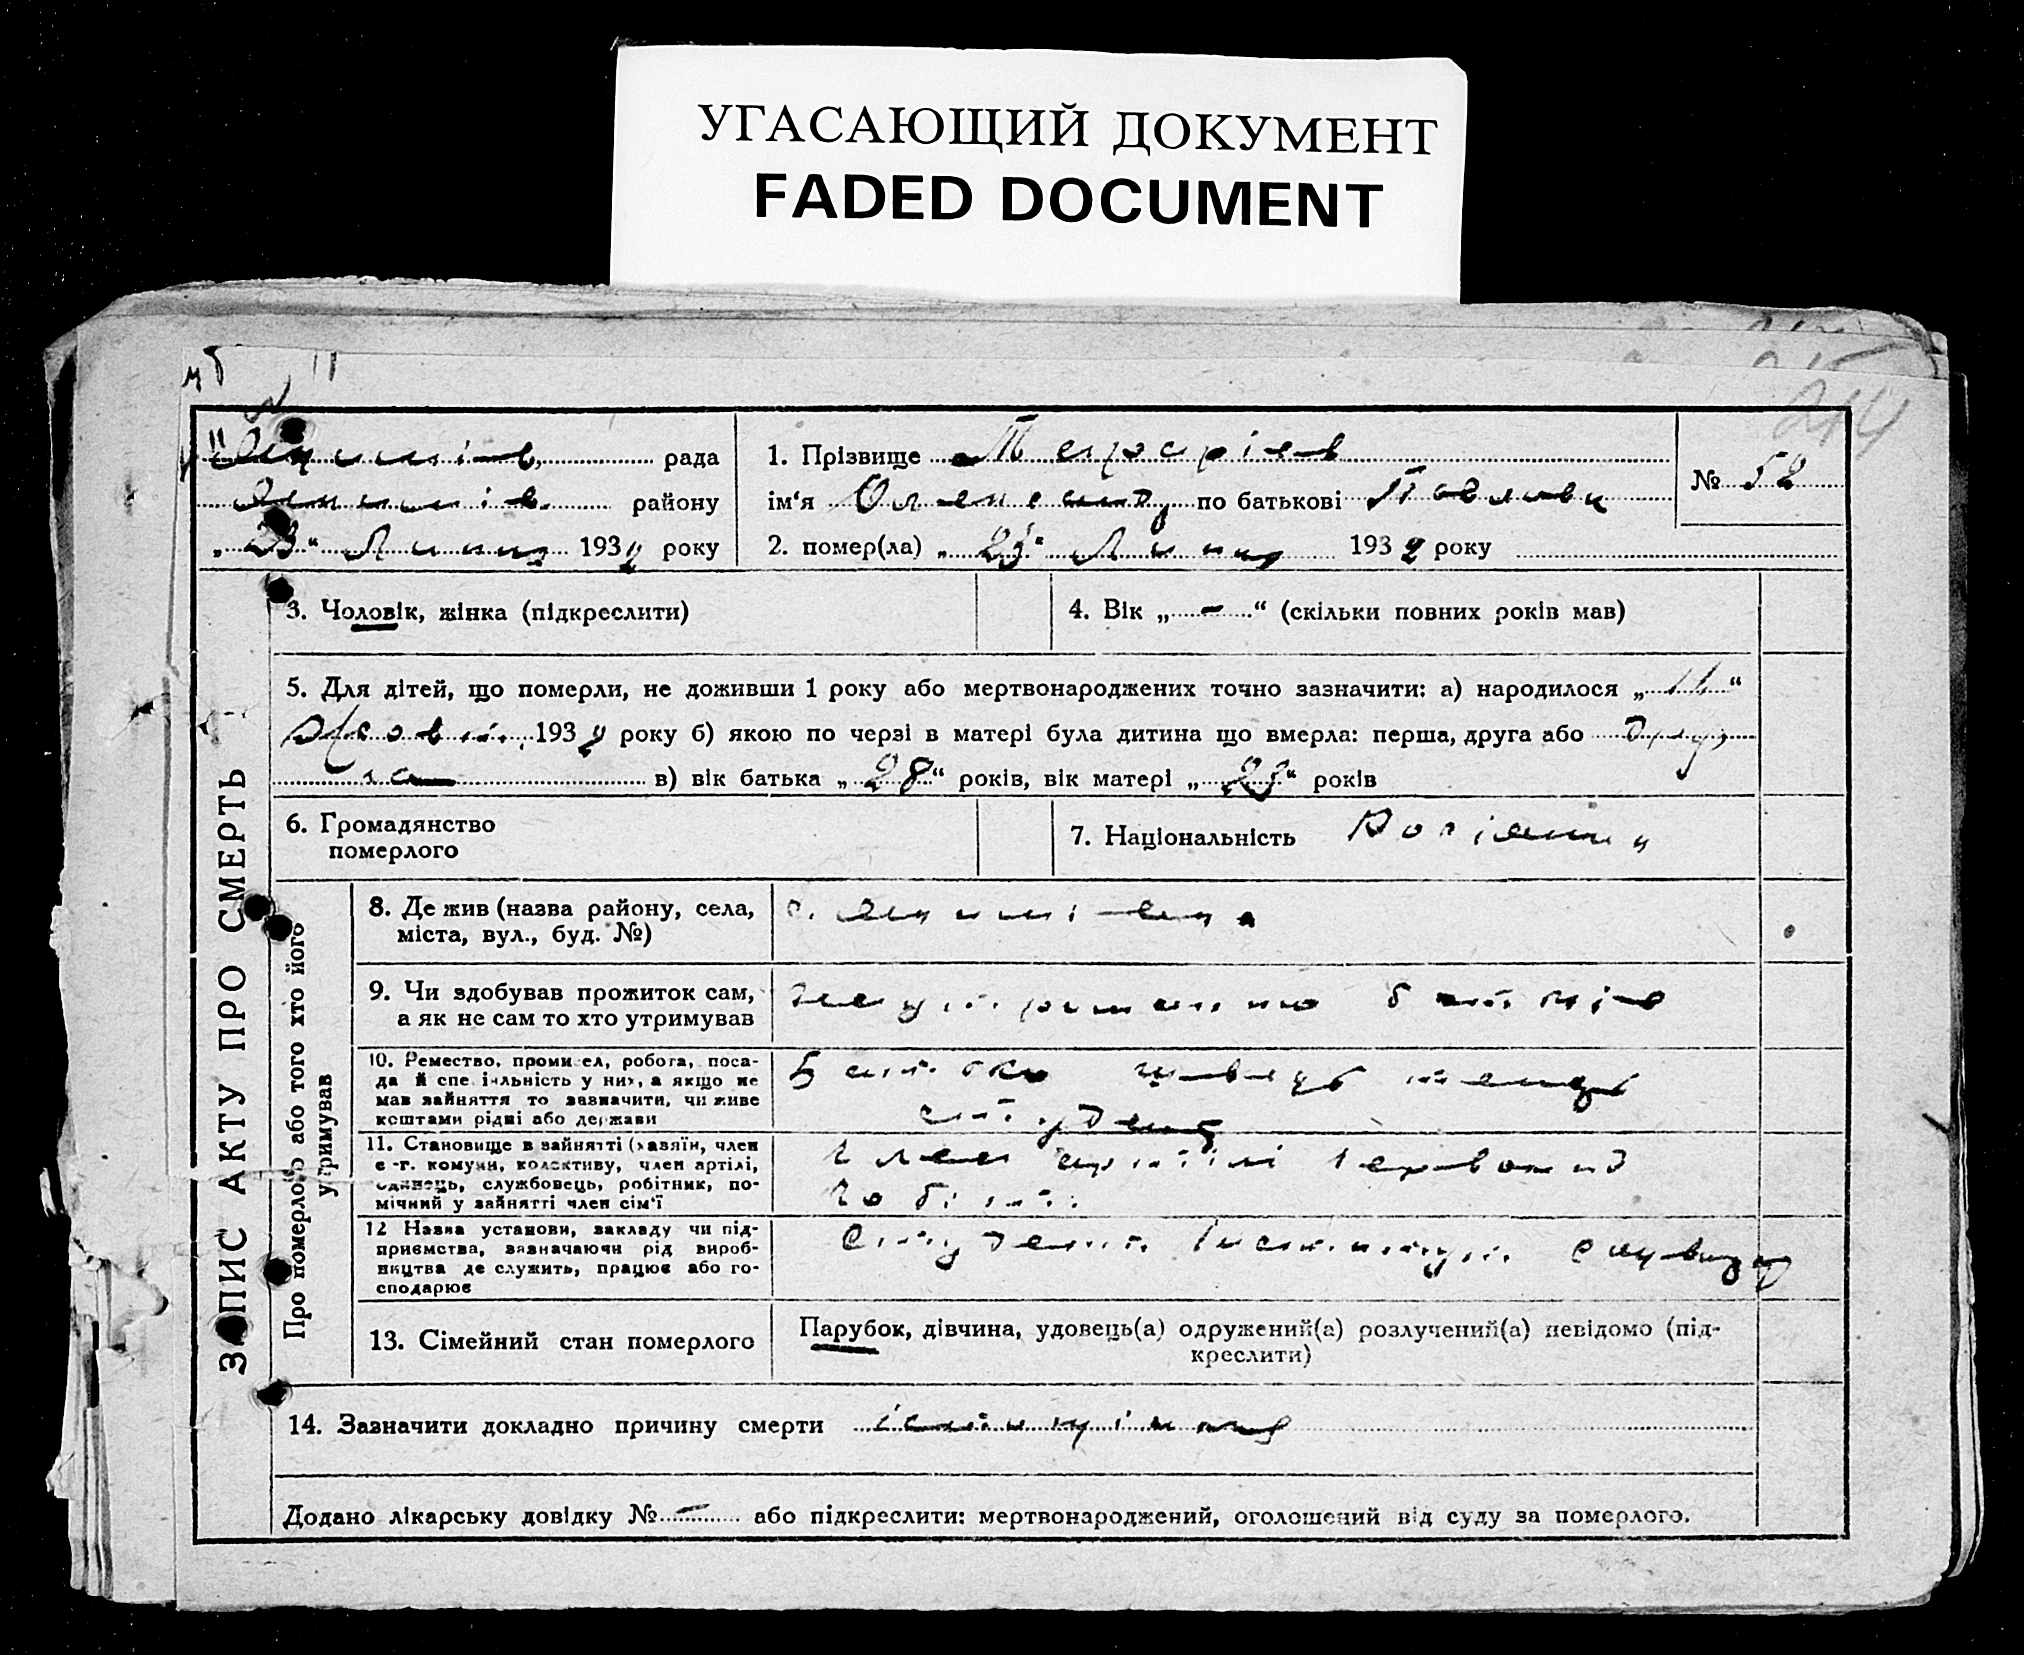 УГАСАЮЩИЙ ДОКУМЕНТ
FADED DOCUMENT
214
рада
району
"23" Липня 1932 року
1. Прізвище
№ 52
ім‘я Олександр по батькові Павлови
2. помер(ла) „ “ Липня 1932 року
ЗАПИС АКТУ ПРО СМЕРТЬ
3. Чоловік, жінка (підкреслити)
4. Вік „ - “ (скільки повних років мав)
5. Для дітей, що померли, не доживши 1 року або мертвонароджених точно зазначити: а) народилося „ 11 “
Жовтн. 193 року б) якою по черзі в матері була дитина що вмерла: перша, друга або
в) вік батька „ 28 “ років, вік матері „ 23 “ років
6. Громадянство
померлого
7. Національність
Про померлого або того хто його
утримував
8. Де жив (назва району, села,
міста, вул., буд. №)
9. Чи здобував прожиток сам,
а як не сам то хто утримував
на утриманню батьків
10. Ремество, промисел, робота, поса-
да й спеціяльність у них, а якщо не
мав зайняття то зазначити, чи живе
коштами рідні або держави
Батько швець тепер
студент
11. Становище в зайнятті (хазяїн, член
с.-г. комуни, колективу, член артілі,
одинець, службовець, робітник, по-
мічний у зайнятті член сім‘ї
член артілі
12 Назва установи, закладу чи під-
приємства, зазначаючи рід вироб-
ництва де служить, працює або го-
сподарює
Студент Інституту
13. Сімейний стан померлого
Парубок, дівчина, удовець(а) одружений(а) розлучений(а) невідомо (під-
креслити)
14. Зазначити докладно причину смерти
Додано лікарську довідку № - або підкреслити: мертвонароджений, оголошений від суду за померлого.